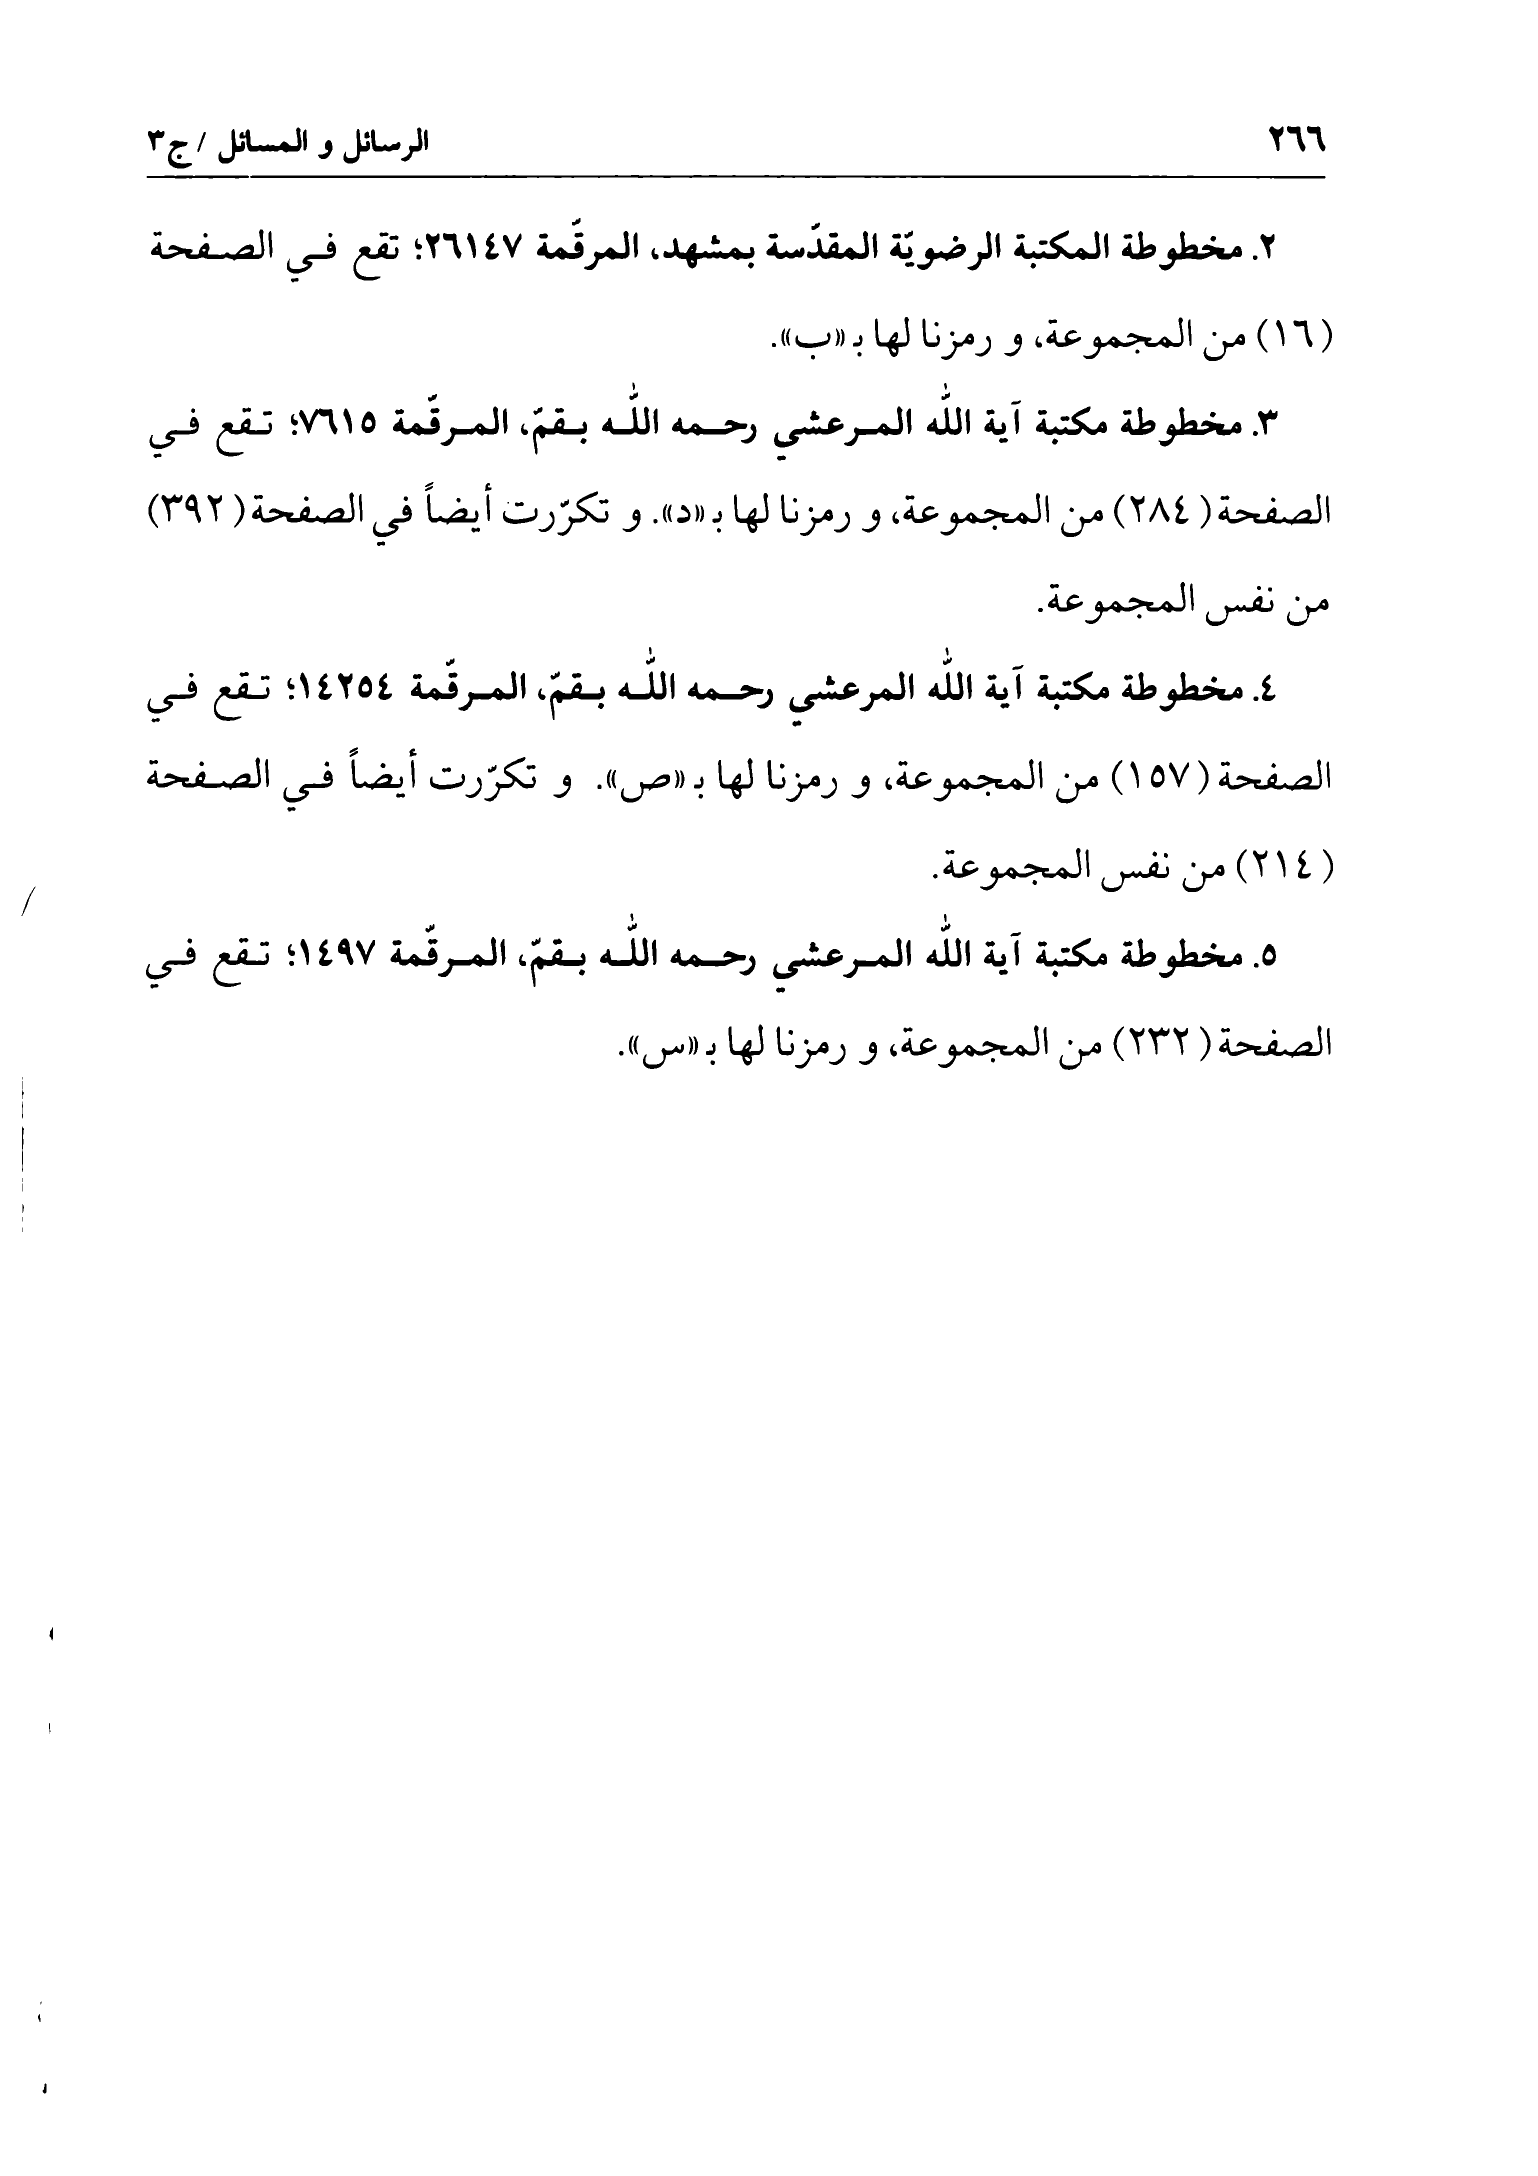 ٢٦٦ الرسائل و المسائل / ج٣
٢. مخطوطة المكتبة الرضويّة المقدّسة بمشهد، المرقّمة ٢٦١٤٧؛ تقع في الصفحة
(١٦) من المجموعة، و رمزنا لها بـ«ب».
٣. مخطوطة مكتبة آية اللّٰه المرعشي رحمه اللّٰه بقمّ، المرقّمة ٧٦١٥؛ تقع في
الصفحة (٢٨٤) من المجموعة، و رمزنا لها بـ«د». و تكرّرت أيضاً في الصفحة (٣٩٢)
من نفس المجموعة.
٤. مخطوطة مكتبة آية اللّٰه المرعشي رحمه اللّٰه بقمّ، المرقّمة ١٤٢٥٤؛ تقع في
الصفحة (١٥٧) من المجموعة، و رمزنا لها بـ«ص». و تكرّرت أيضاً في الصفحة
(٢١٤) من نفس المجموعة.
٥. مخطوطة مكتبة آية اللّٰه المرعشي رحمه اللّٰه بقمّ، المرقّمة ١٤٩٧؛ تقع في
الصفحة (٢٣٢) من المجموعة، و رمزنا لها بـ«س».